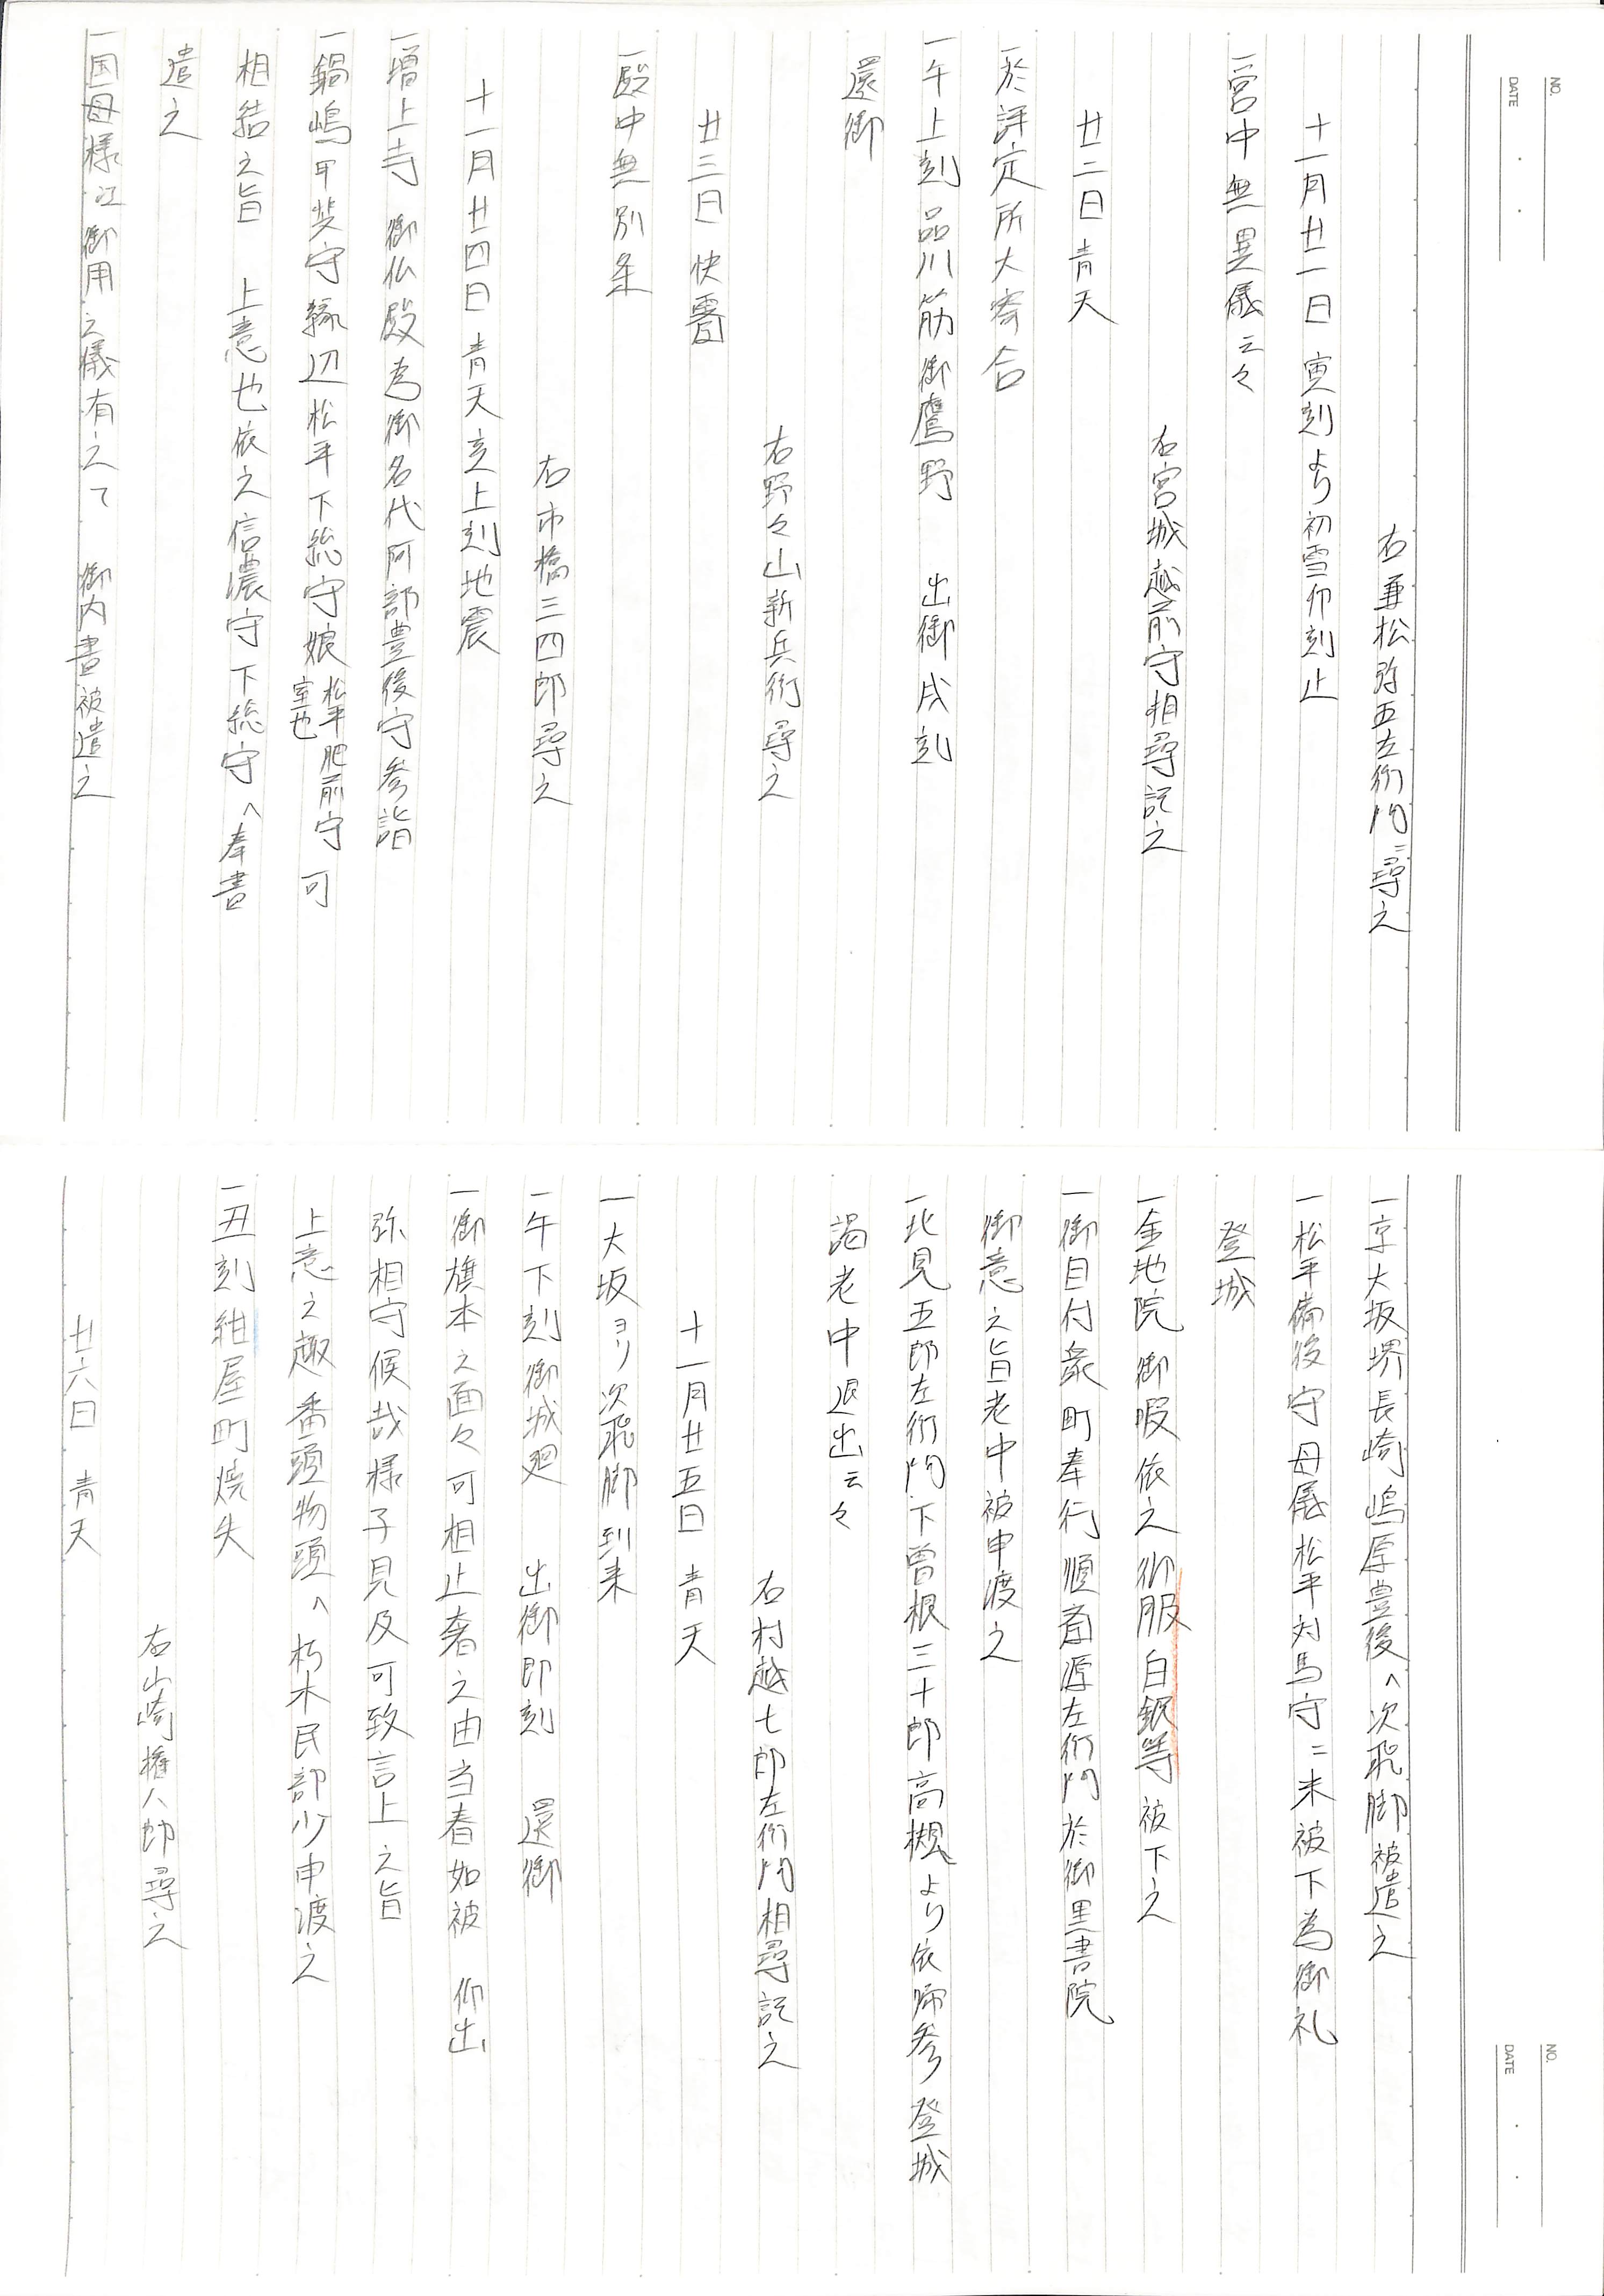 NO.
DATE
右兼松弥五左衛門ニ尋之
十一月廿一日 寅刻より初雪卯刻止
一宮中無異儀云々
右宮城越前守相尋記之
廿二日 青天
一於評定所大寄合
一午上刻品川筋御鷹野 出御戌刻
還御
右野々山新兵衛尋之
廿三日 快霽
一殿中無別条
右市橋三四郎尋之
十一月廿四日 青天亥上刻地震
一増上寺 御仏殿為御名代阿部豊後守参詣
一鍋嶋甲斐守縁辺松平下総守娘 松平肥前守室也 可
相結之旨 上意也依之信濃守下総守へ奉書
遣之
一国母様江御用之儀有之て 御内書被遣之
NO.
DATE
一京大坂堺長崎嶋原豊後へ次飛脚被遣之
一松平備後守母儀松平対馬守ニ米被下為御礼
登城
一金地院御暇依之御服白銀等被下之
一御目付衆町奉行順斎源左衛門於御黒書院
御意之旨老中被申渡之
一北見五郎左衛門下曽根三十郎高槻より依帰参登城
謁老中退出云々
右村越七郎左衛門相尋記之
十一月廿五日 青天
一大坂ヨリ次飛脚到来
一午下刻御城廻 出御即刻 還御
一御旗本之面々可相止奢之由当春如被 仰出
弥相守候哉様子見及可致言上之旨
上意之趣番頭物頭へ朽木民部少申渡之
一丑刻紺屋町焼失
右山崎権八郎尋之
廿六日 青天